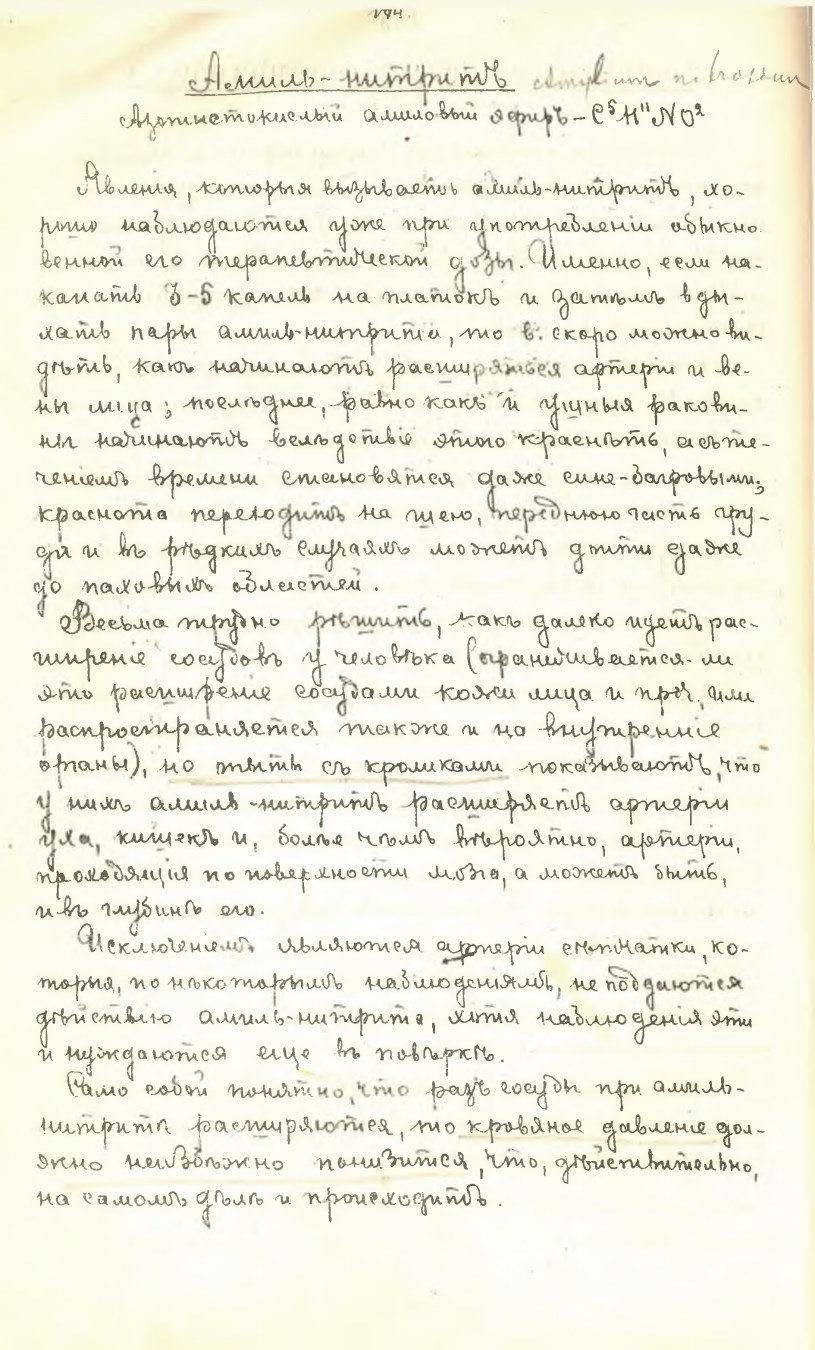 194.
Амиль-нитритъ Amylium nitrosum
Азотистокислый амиловый эфиръ – C⁵H¹¹NO²
Явленія, которыя вызываетъ амиль-нитритъ, хо-
рошо наблюдаются уже при употребленіи обыкно-
венной его терапевтической дозы. Именно, если на-
капать 3-5 капель на платокъ и затѣмъ вды-
хать пары амиль-нитрита, то в. скоро можно ви-
дѣть, какъ начинаютъ расширяться артеріи и ве-
ны лица; послѣднее, равно какъ и ушныя ракови-
ны начинаютъ вслѣдствіе этого краснѣть, а съ те-
ченіемъ времени становятся даже сине-багровыми;
краснота переходитъ на шею, переднюю часть гру-
ди и въ рѣдкихъ случаяхъ можетъ дойти даже
до паховыхъ областей.
Весьма трудно рѣшить, какъ далеко идетъ рас-
ширеніе сосудовъ у человѣка (ограничивается-ли
это расширеніе сосудами кожи лица и проч., или
распространяется также и на внутренніе
органы), но опыты съ кроликами показываютъ, что
у нихъ амиль-нитритъ расширяетъ артеріи
уха, кишекъ и, болѣе чѣмъ вѣроятно, артеріи,
проходящія по поверхности мозга, а можетъ быть,
и въ глубинѣ его.
Исключеніемъ являются артеріи сѣтчатки, ко-
торыя, по нѣкоторымъ наблюденіямъ, не поддаются
дѣйствію амиль-нитрита, хотя наблюденія эти
и нуждаются еще въ повѣркѣ.
Само собой понятно, что разъ сосуды при амиль-
нитритѣ расширяются, то кровяное давленіе дол-
жно неизбѣжно понизится, что, дѣйствительно,
на самомъ дѣлѣ и происходитъ.